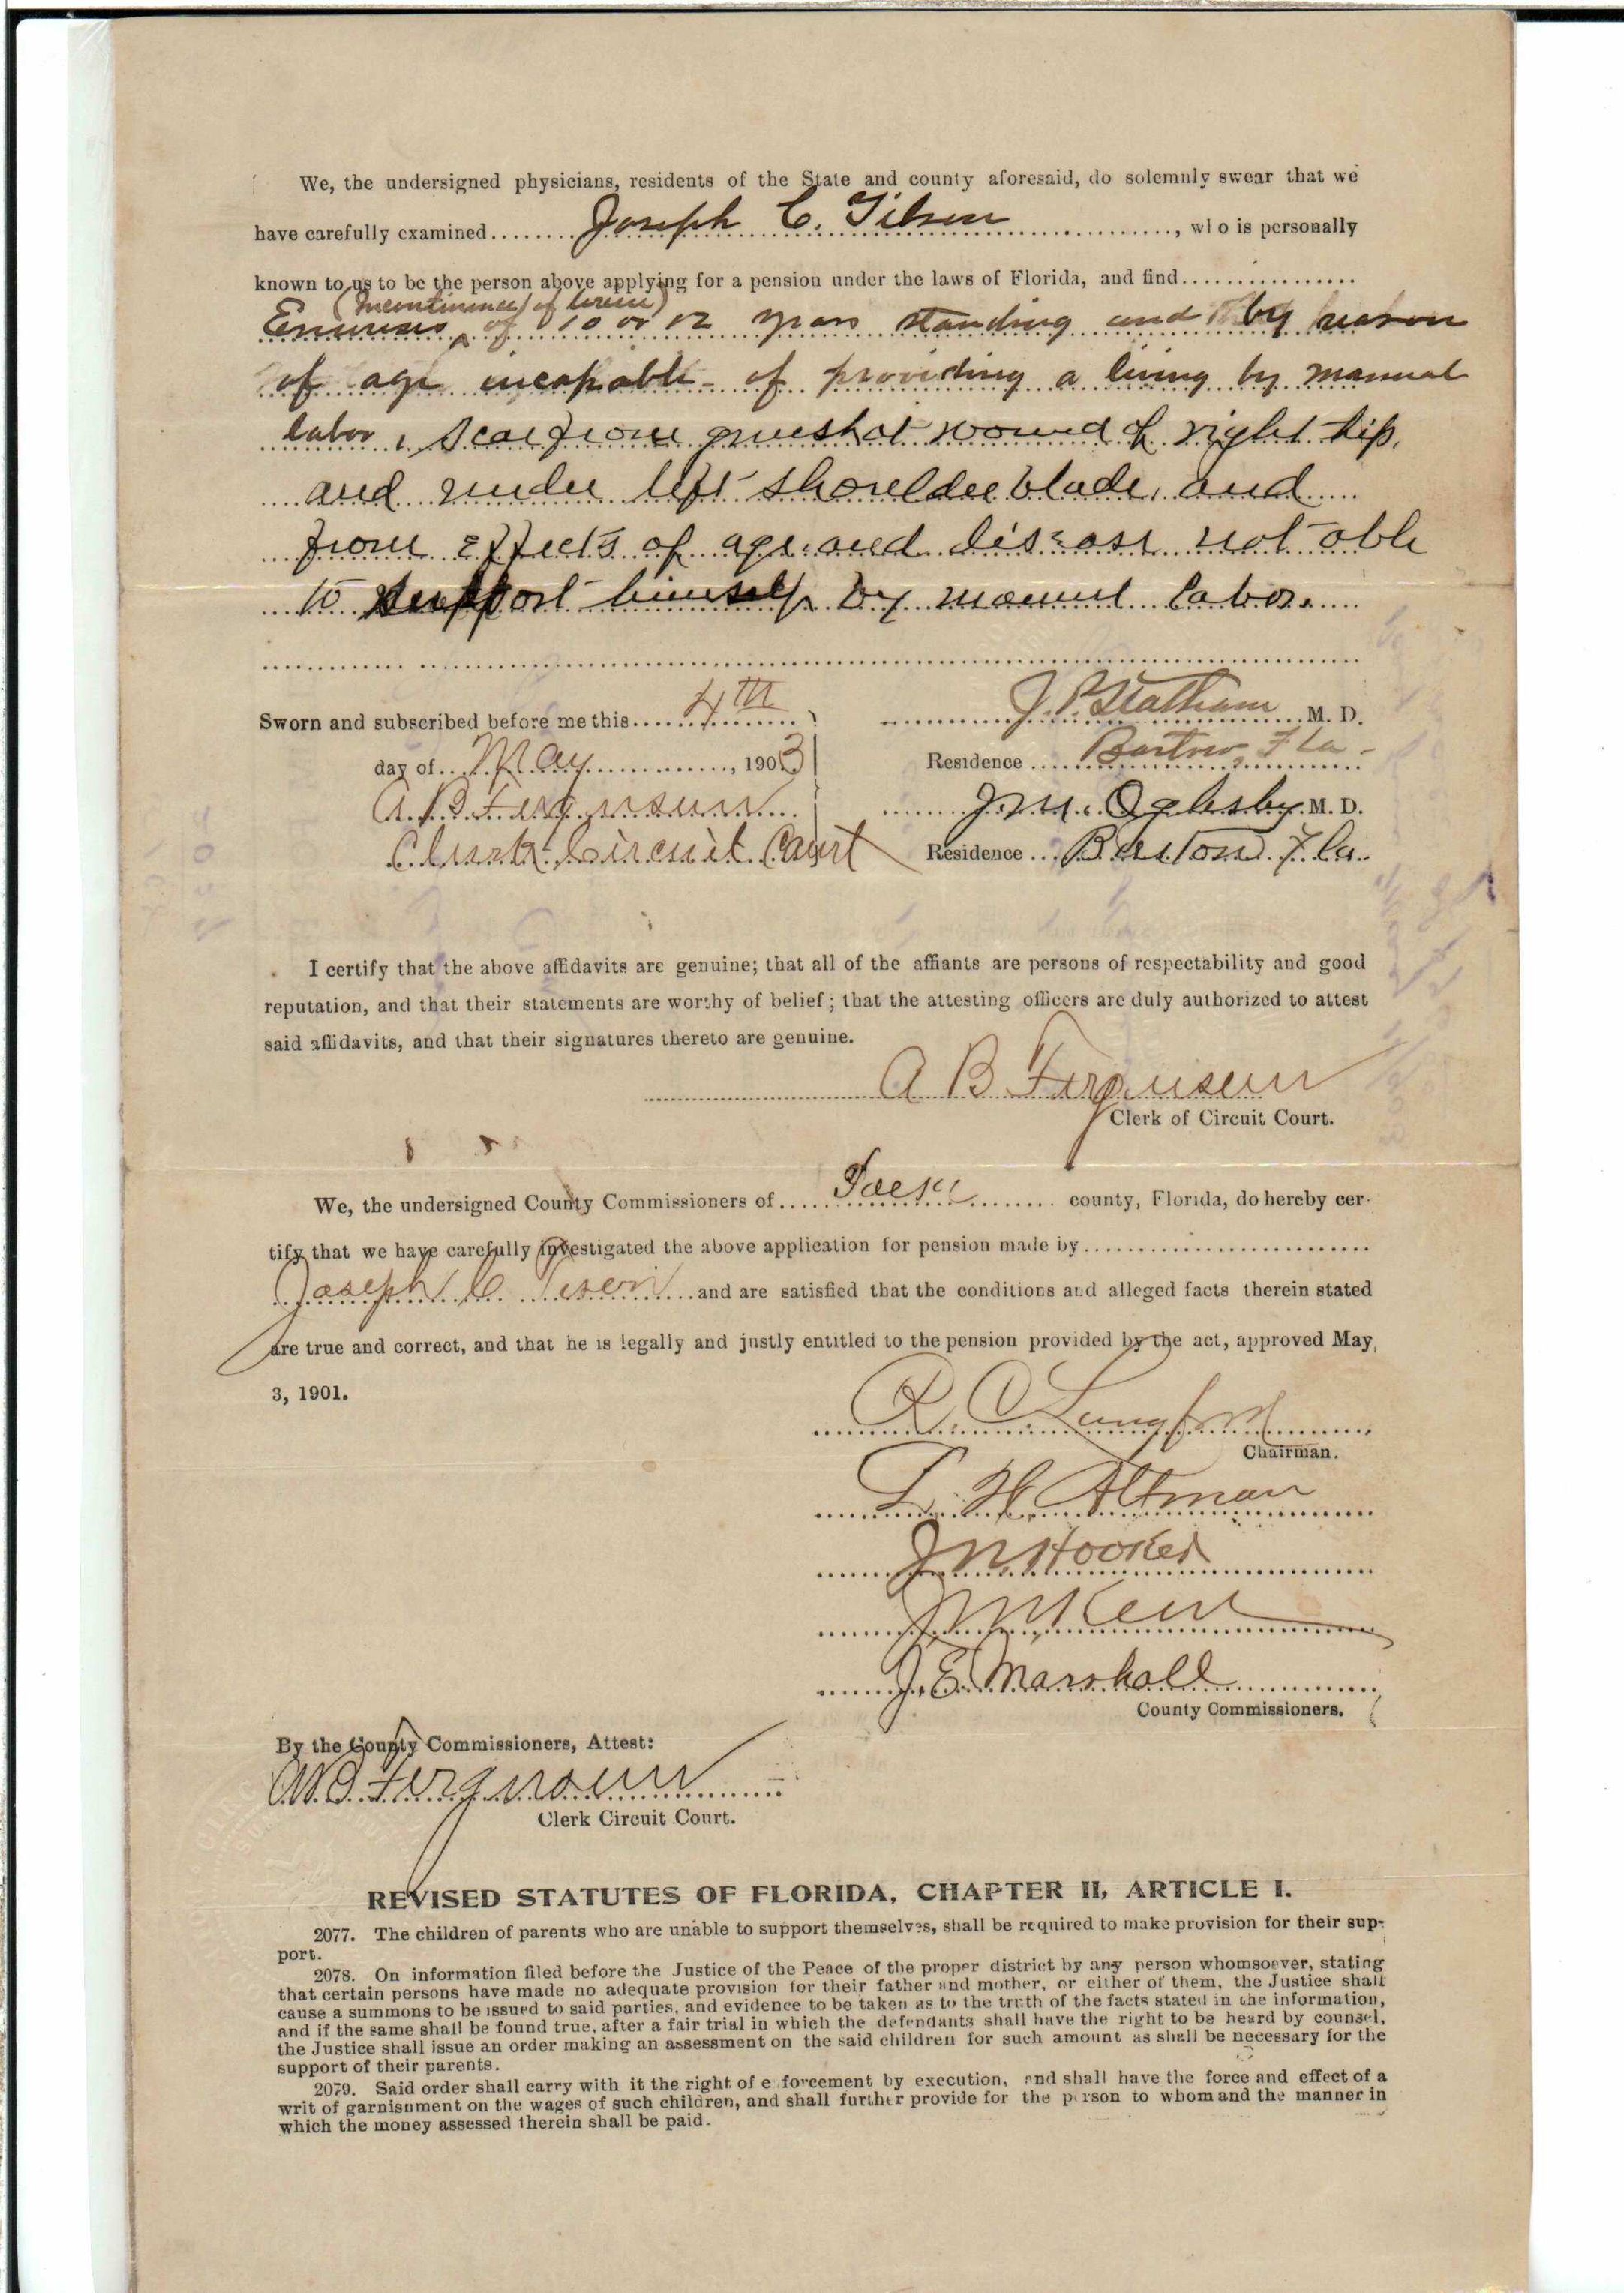 We, the undersigned physicians, residents of the State and county aforesaid, do solemnly swear that we
have carefully examined Joseph C. Tison, who is personally
known to us to be the person above applying for a pension under the laws of Florida, and find
(Incontinence of Urine)
Enuresis of 10 or 12 years standing and by reason
of age incapable of providing a living by manual
labor, Scar from gunshot wound of right hip,
and under left shoulder blade, and
from effects of age and disease not able
to support himself by manuel labor.
Sworn and subscribed before me this 4th
day of May, 1903
A B Ferguson
Clerk Circuit Court
J. P. Statham M. D.
Residence Bartow, Fla.
J. M. Oglesby M. D.
Residence Bartow Fla.
I certify that the above affidavits are genuine; that all of the affiants are persons of respectability and good
reputation, and that their statements are worthy of belief; that the attesting officers are duly authorized to attest
said affidavits, and that their signatures thereto are genuine.
A B Ferguson
Clerk of Circuit Court.
We, the undersigned County Commissioners of Polk county, Florida, do hereby cer-
tify that we have carefully investigated the above application for pension made by
Joseph C Tison and are satisfied that the conditions and alleged facts therein stated
are true and correct, and that he is legally and justly entitled to the pension provided by the act, approved May
3, 1901.
R. C. Langford
Chairman.
L. H. Altman
J N. Hooker
J M Keen
J. E. Marshall
County Commissioners.
By the County Commissioners, Attest:
A B Ferguson
Clerk Circuit Court.
REVISED STATUTES OF FLORIDA, CHAPTER II, ARTICLE I.
2077. The children of parents who are unable to support themselves, shall be required to make provision for their sup-
port.
2078. On information filed before the Justice of the Peace of the proper district by any person whomsoever, stating
that certain persons have made no adequate provision for their father and mother, or either of them, the Justice shall
cause a summons to be issued to said parties, and evidence to be taken as to the truth of the facts stated in the information,
and if the same shall be found true, after a fair trial in which the defendants shall have the right to be heard by counsel,
the Justice shall issue an order making an assessment on the said children for such amount as shall be necessary for the
support of their parents.
2079. Said order shall carry with it the right of enforcement by execution, and shall have the force and effect of a
writ of garnishment on the wages of such children, and shall further provide for the person to whom and the manner in
which the money assessed therein shall be paid.